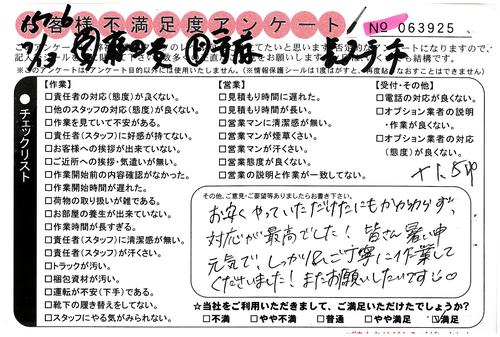 お客様不満足度アンケート
No 063925
7/13
チェックリスト
【作業】
□責任者の対応(態度)が良くない。
□他のスタッフの対応(態度)が良くない。
□作業を見ていて不安がある。
□責任者(スタッフ)に好感が持てない。
□お客様への挨拶が出来ていない。
□ご近所への挨拶・気遣いが無い。
□作業開始前の内容確認がなかった。
□作業開始時間が遅れた。
□荷物の取り扱いが雑である。
□お部屋の養生が出来ていない。
□作業時間が長すぎる。
□責任者(スタッフ)に清潔感が無い。
□責任者(スタッフ)が汗くさい。
□トラックが汚い。
□梱包資材が汚い。
□運転が不安(下手)である。
□靴下の履き替えをしてない。
□スタッフにやる気がみられない。
【営業】
□見積もり時間に遅れた。
□見積もり時間が長い。
□営業マンに清潔感が無い。
□営業マンが煙草くさい。
□営業マンが汗くさい。
□営業態度が良くない。
□営業の説明と作業が一致してない。
【受付・その他】
□電話の対応が良くない。
□オプション業者の説明
・作業が良くない。
□オプション業者の対応
(態度)が良くない。
その他、ご意見・ご要望等ありましたらお書き下さい。
お安くやっていただけたにもかかわらず、
対応が最高でした! 皆さん暑い中
元気で、しっかりとご丁寧に作業して
くださいました! またお願いしたいです
☆当社をご利用いただきまして、ご満足いただけたでしょうか?
□不満 □やや不満 □普通 □やや満足 ☑満足